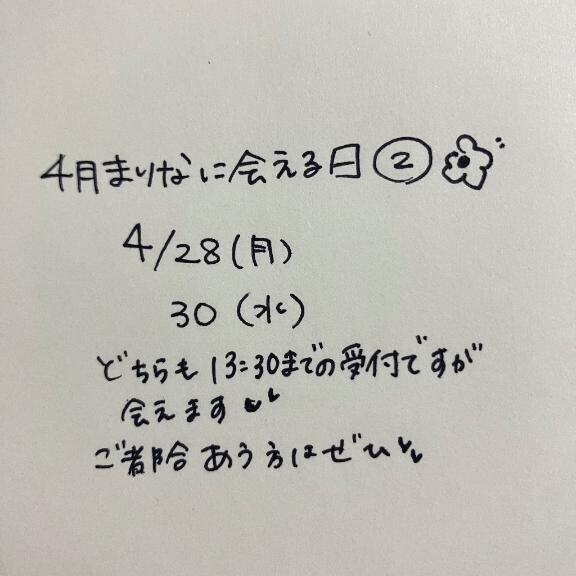 4月まりなに会える日②
4/28(月)
30(水)
どちらも13:30までの受付ですが
会えます
ご都合あう方はぜひ